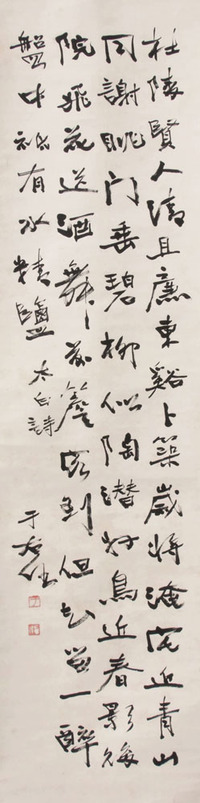 杜陵賢人清且廉東谿卜築歲將淹宅近青山
同謝朓門垂碧柳似陶潛好鳥迎春歌後
院飛花送酒舞前簷客到但知留一醉
盤中祗有水精鹽 太白詩
于右任